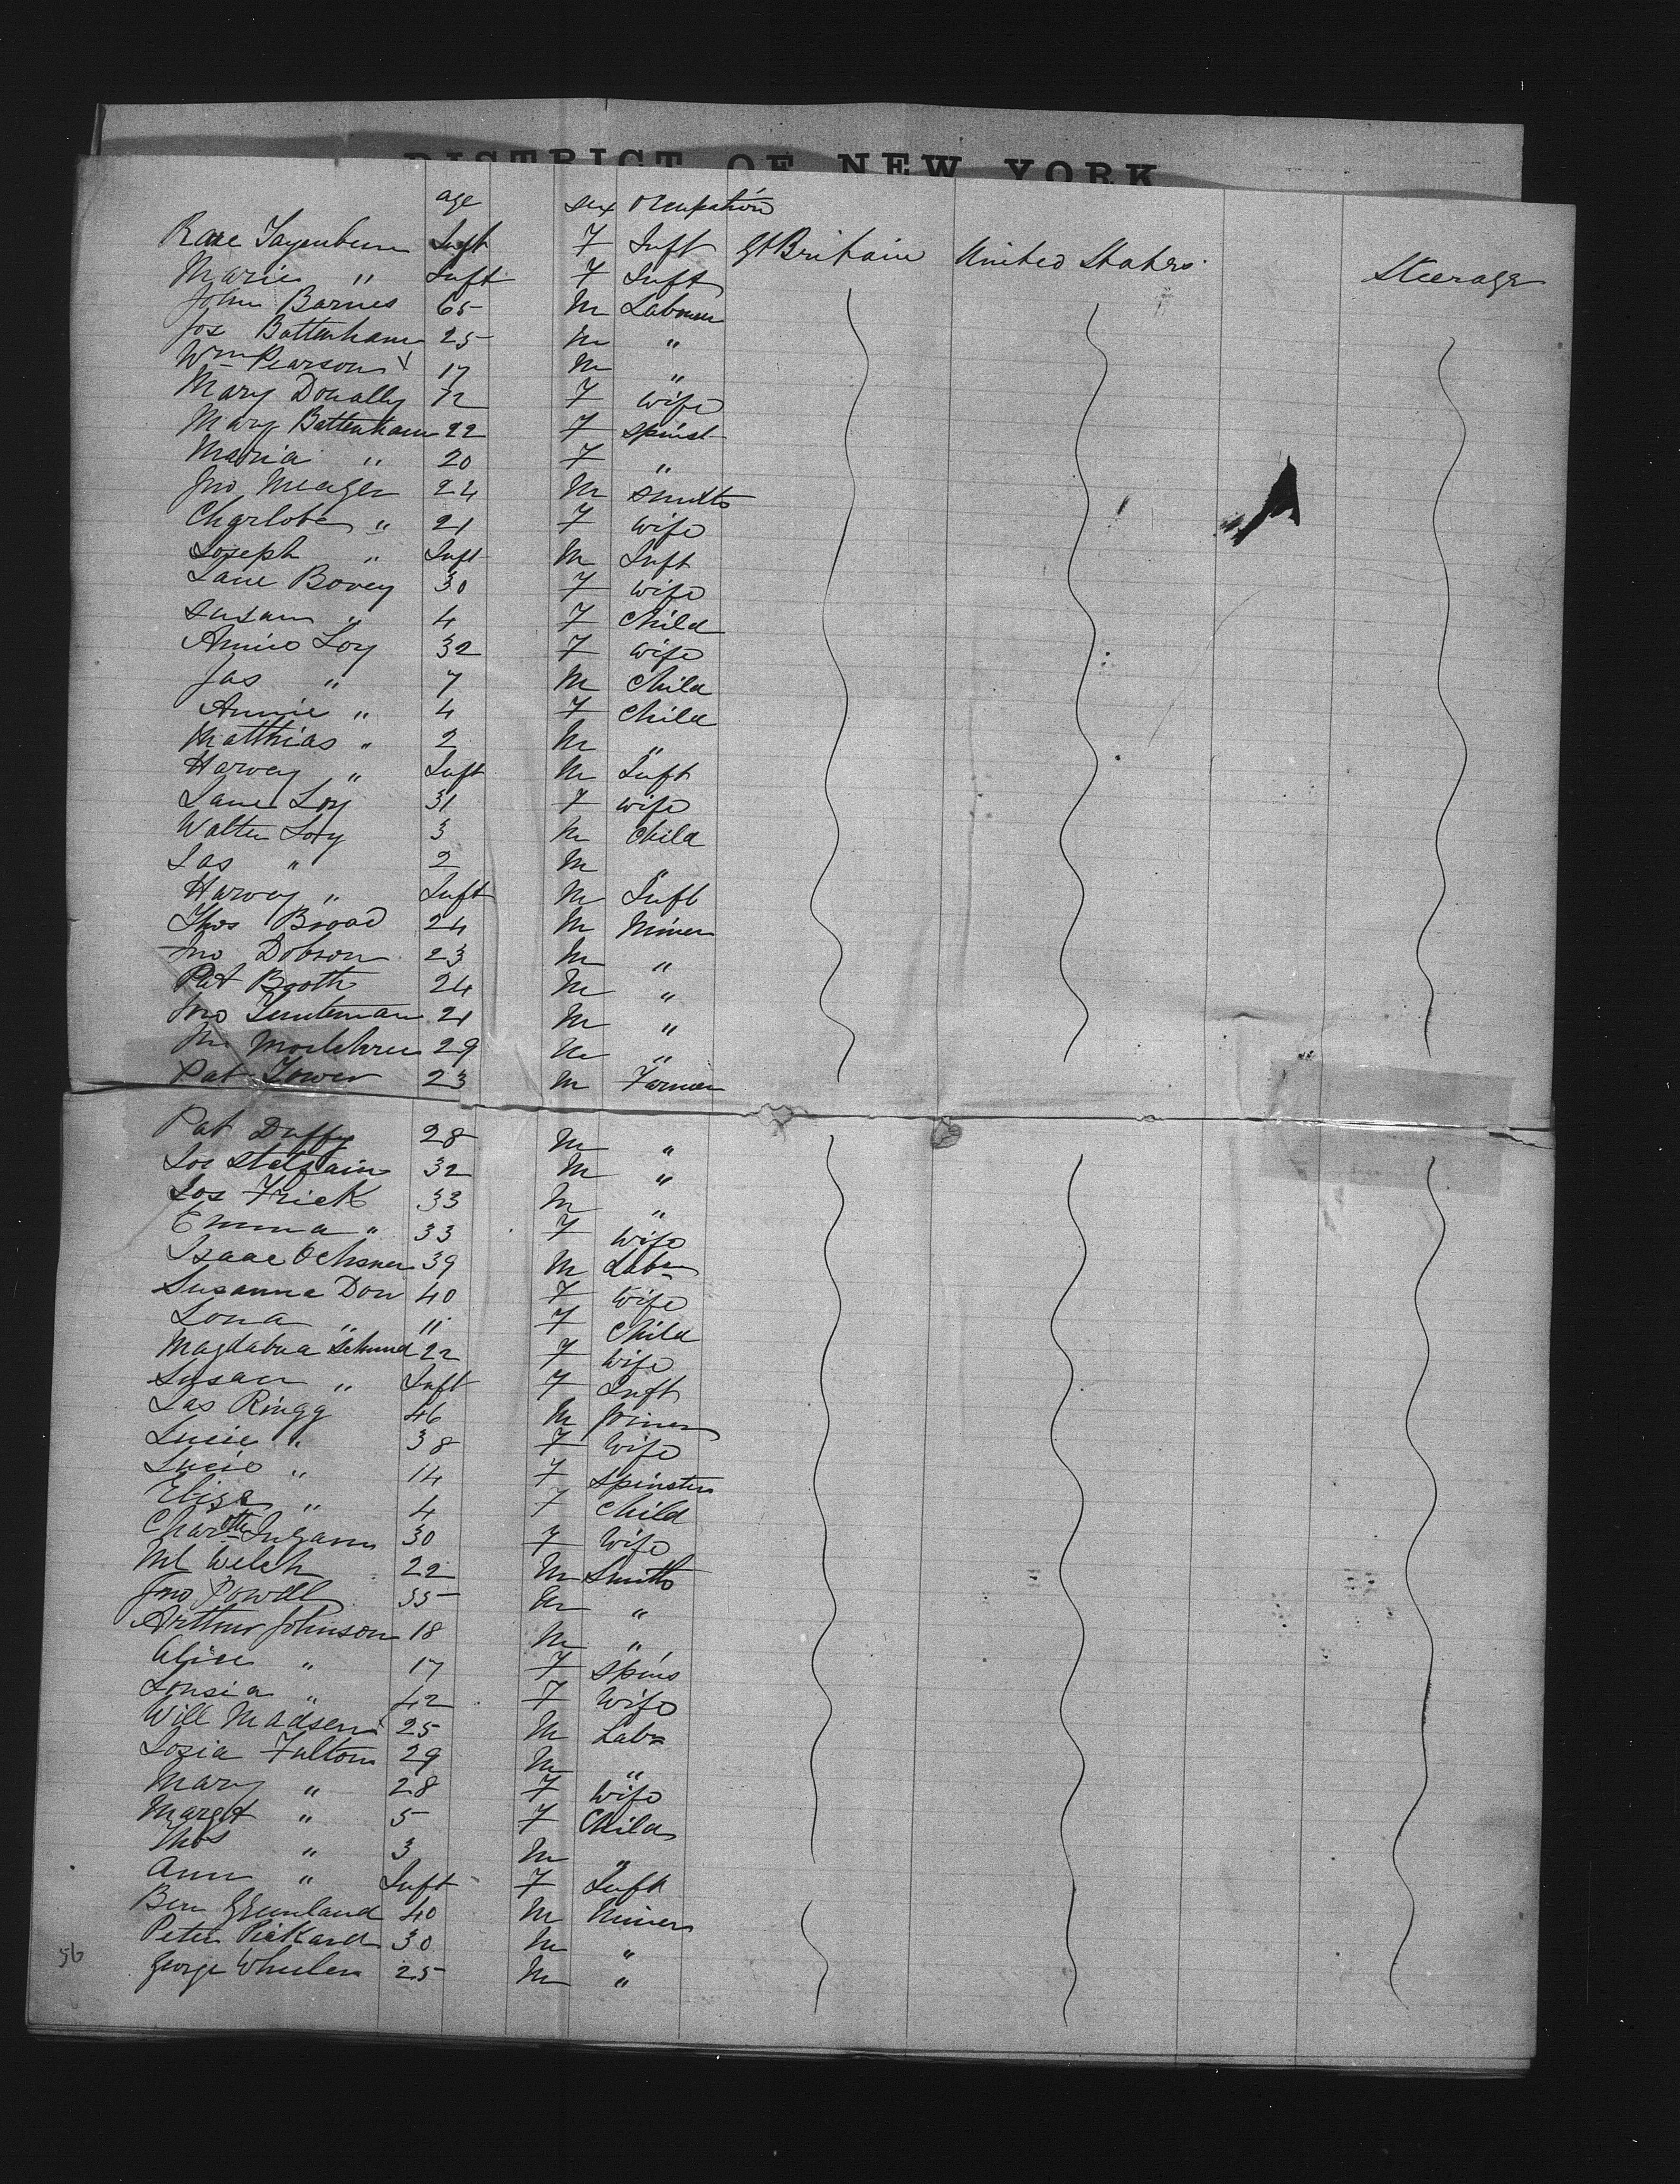 DISTRICT OF NEW YORK
age sex Occupation
Rose Tayenbeum Inft F Inft Gt Britain United States Steerage
Marie " Inft F Inft
John Barnes 65 M Labourer
Jos Battenham 25 M "
Wm Pearson 17 M "
Mary Donally 72 F Wife
Mary Battenham 22 F Spinst
Maria " 20 F "
Jno Meager 24 M Smith
Charlote " 21 F Wife
Joseph " Inft M Inft
Jane Bovey 30 F Wife
Susan " 4 F Child
Annie Loy 32 F Wife
Jas " 7 M Child
Annie " 4 F Child
Matthias " 2 M "
Harvey " Inft M Inft
Jane Loy 31 F Wife
Walter Loy 3 M Child
Jas " 2 M "
Harvey " Inft M Inft
Thos Broad 24 M Miner
Jno Dobson 23 M "
Pat Booth 24 M "
Jno 21 M "
Jno 29 M "
Pat Power 23 M Farmer
Pat Duffy 28 M "
Jos 32 M "
Jos Frick 33 M "
Emma " 33 F Wife
Isaac Ochsner 39 M Labr
Susanna Don 40 F Wife
Lona " 11 F Child
Magdabua Schund 22 F Wife
Susan " Inft F Inft
Jas Ringg 46 M Joiner
Lucie " 38 F Wife
Lucie " 14 F Spinster
Eliza " 4 F Child
Charotte 30 F Wife
Ml Welch 22 M Smith
Jno Powell 35 M "
Arthur Johnson 18 M "
Alice " 17 F Spins
Lousia " 42 F Wife
Will Madsen 25 M Labr
Josia Fulton 29 M "
Mary " 28 F Wife
Margt " 5 F Child
Thos " 3 M "
Ann " Inft F Inft
Ben Greenland 40 M Miner
Peter Pickard 30 M "
George Wheeler 25 M "
56